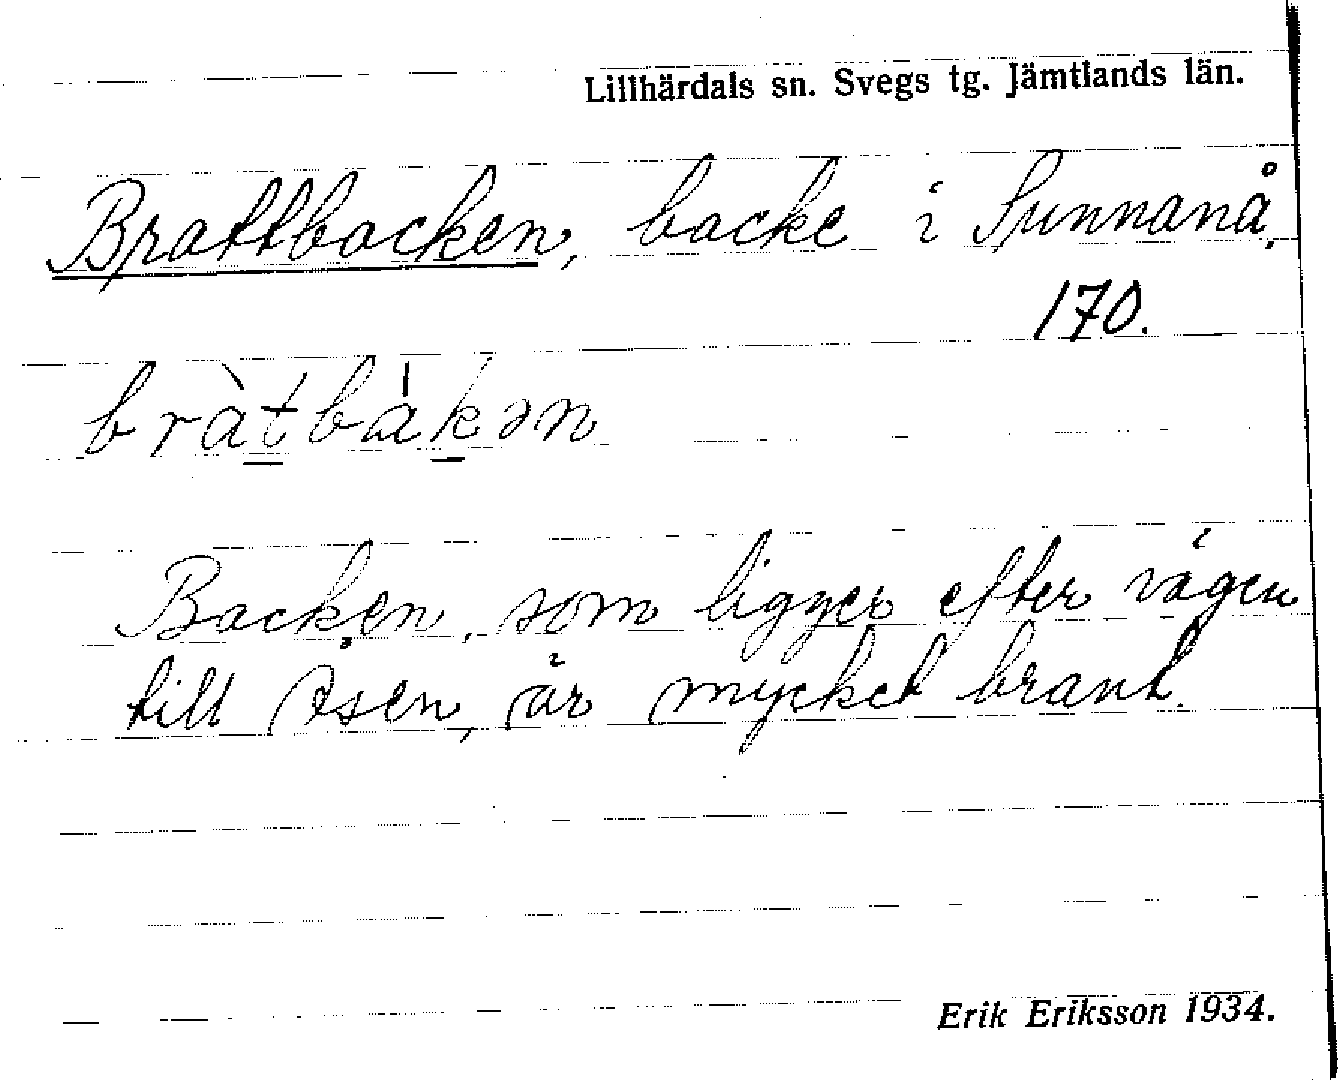 Lillhärdals sn. Svegs tg. Jämtlands län.
Brattbacken, backe i Sunnanå,
170.
bràt̲bàk̲ən
Backen, som ligger efter vägen
till Åsen, är mycket brant.
Erik Eriksson 1934.